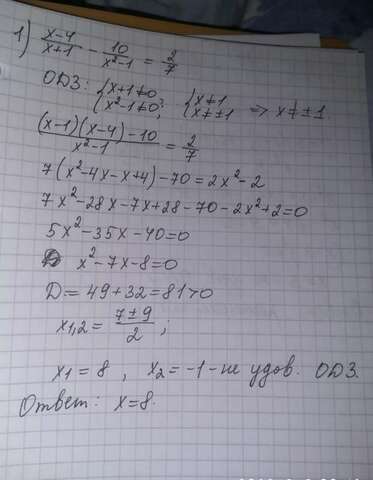 1) (x-4)/(x+1) - 10/(x²-1) = 2/7
ОДЗ: {x+1≠0 {x²-1≠0; {x≠1 {x≠±1 => x≠±1.
((x-1)(x-4)-10)/(x²-1) = 2/7
7(x²-4x-x+4)-70=2x²-2
7x²-28x-7x+28-70-2x²+2=0
5x²-35x-40=0
x²-7x-8=0
D=49+32=81>0
x1,2 = (7±9)/2;
x1=8, x2=-1-не удов. ОДЗ.
Ответ: x=8.